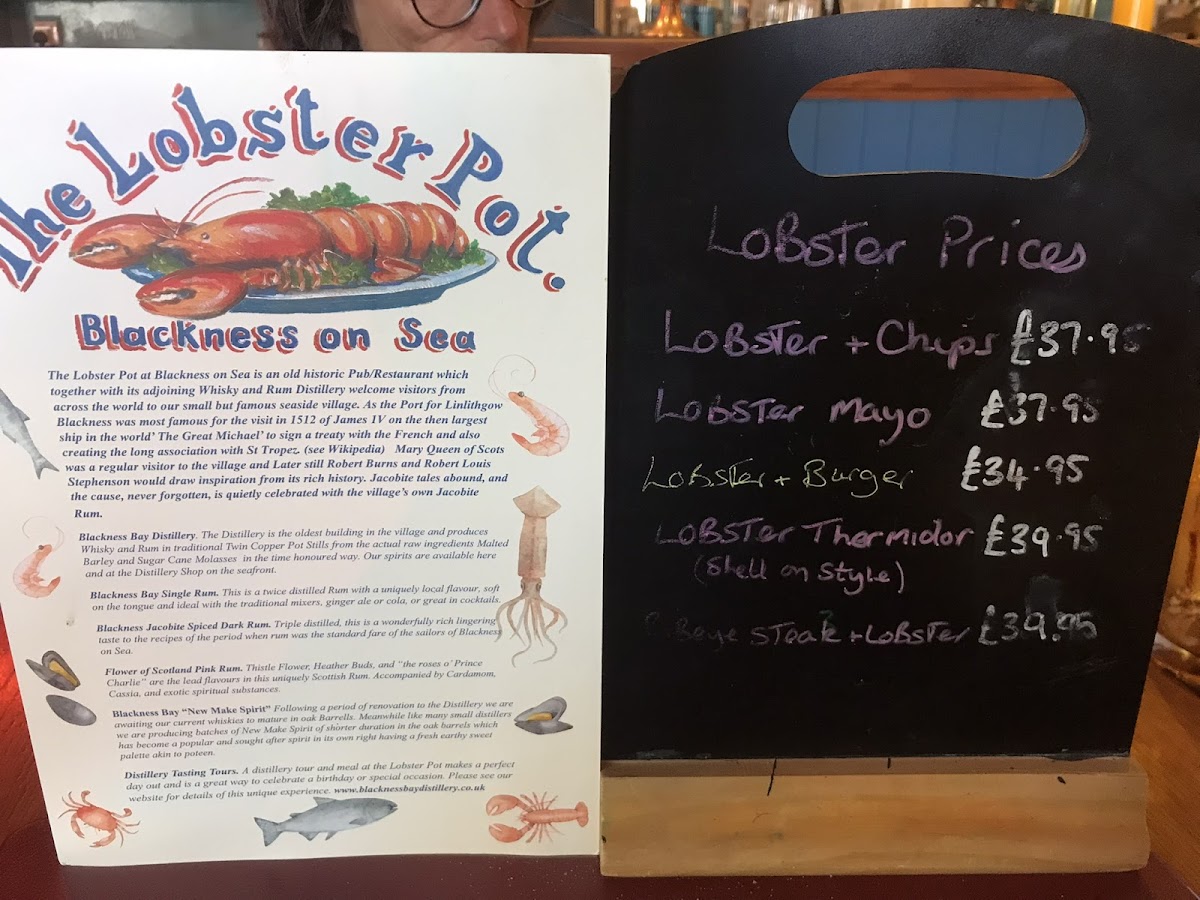 The Lobster Pot.
Blackness on Sea
The Lobster Pot at Blackness on Sea is an old historic Pub/Restaurant which
together with its adjoining Whisky and Rum Distillery welcome visitors from
across the world to our small but famous seaside village. As the Port for Linlithgow
Blackness was most famous for the visit in 1512 of James IV on the then largest
ship in the world' The Great Michael' to sign a treaty with the French and also
creating the long association with St Tropez. (see Wikipedia) Mary Queen of Scots
was a regular visitor to the village and Later still Robert Burns and Robert Louis
Stephenson would draw inspiration from its rich history. Jacobite tales abound, and
the cause, never forgotten, is quietly celebrated with the village's own Jacobite
Rum.
Blackness Bay Distillery. The Distillery is the oldest building in the village and produces
Whisky and Rum in traditional Twin Copper Pot Stills from the actual raw ingredients Malted
Barley and Sugar Cane Molasses in the time honoured way. Our spirits are available here
and at the Distillery Shop on the seafront.
Blackness Bay Single Rum. This is a twice distilled Rum with a uniquely local flavour, soft
on the tongue and ideal with the traditional mixers, ginger ale or cola, or great in cocktails.
Blackness Jacobite Spiced Dark Rum. Triple distilled, this is a wonderfully rich lingering
taste to the recipes of the period when rum was the standard fare of the sailors of Blackness
on Sea.
Flower of Scotland Pink Rum. Thistle Flower, Heather Buds, and "the roses o' Prince
Charlie" are the lead flavours in this uniquely Scottish Rum. Accompanied by Cardamom,
Cassia, and exotic spiritual substances.
Blackness Bay "New Make Spirit" Following a period of renovation to the Distillery we are
awaiting our current whiskies to mature in oak Barrells. Meanwhile like many small distillers
we are producing batches of New Make Spirit of shorter duration in the oak barrels which
has become a popular and sought after spirit in its own right having a fresh earthy sweet
palette akin to poteen.
Distillery Tasting Tours. A distillery tour and meal at the Lobster Pot makes a perfect
day out and is a great way to celebrate a birthday or special occasion. Please see our
website for details of this unique experience. www.blacknessbaydistillery.co.uk
Lobster Prices
Lobster + Chips £37.95
Lobster Mayo £37.95
Lobster + Burger £34.95
Lobster Thermidor £39.95
(Shell on Style)
Ribeye Steak + Lobster £39.95